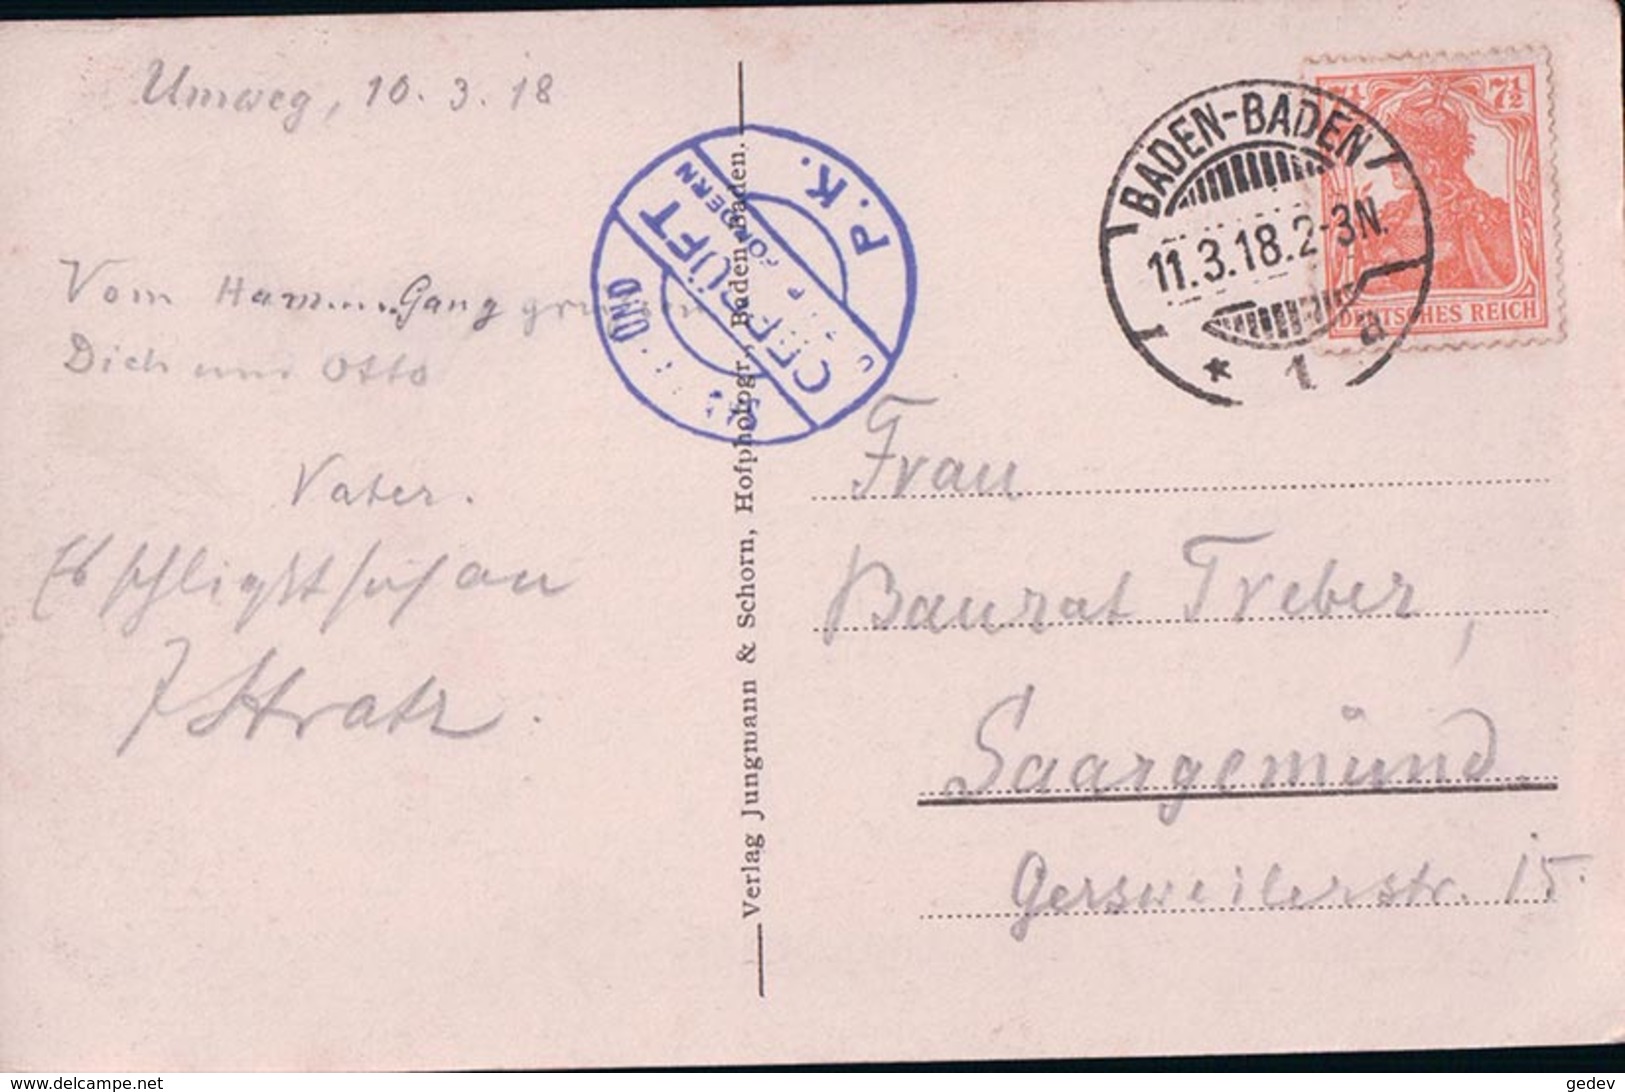 Umweg, 10. 3. 18
Vom Ham....Gang grüssen
Dich und Otto
Vater.
Es schließt sich an
Stratz.
Verlag Jungmann & Schorn, Hofphotogr., Baden-Baden.
GEPRÜFT
P. K.
BADEN-BADEN
11.3.18.2-3N.
* 1 a
7½ 7½
DEUTSCHES REICH
Frau
Baurat Treber,
Saargemünd.
Gersweilerstr. 15.
www.delcampe.net
gedev